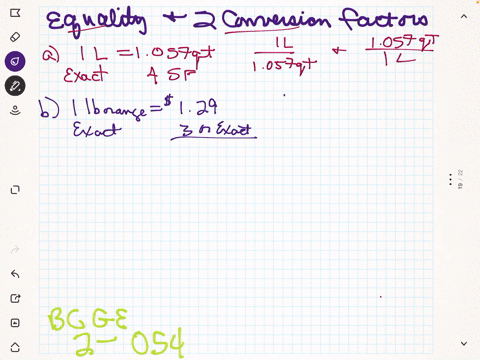 Equality + 2 Conversion Factors
a) 1 L = 1.057qt 1L / 1.057qT + 1.057qT / 1L
Exact 4 SF
b) 1 lb orange = $1.29
Exact 3 or Exact
BCGE
2- 054
19 / 22